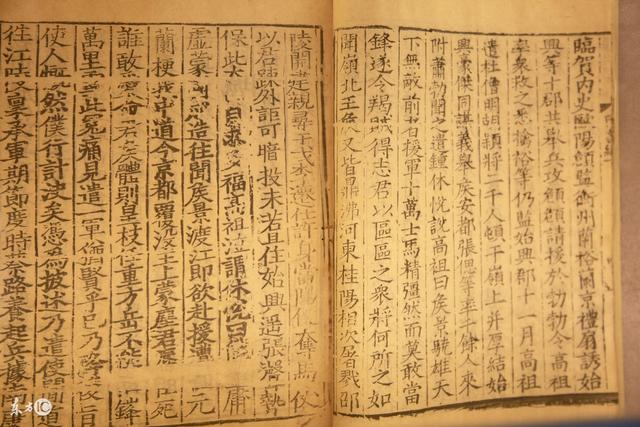 臨賀內史歐陽頠監衡州蘭裕蘭京禮扇誘始
興等十郡共舉兵攻頠頠請援於勃勃令高祖
率衆救之悉擒裕等仍監始興郡十一月高祖
遣杜僧明胡穎將二千人頓于嶺上並厚結始
興豪傑同謀義舉侯安都張偲等率千餘人來
附蕭勃聞之遣鍾休悅說高祖曰侯景驍雄天
下無敵前者援軍十萬士馬精彊然而莫敢當
鋒遂令羯賊得志君以區區之衆將何所之如
聞嶺北王侯又皆鼎沸河東桂陽相次屠戮邵
陵開建親尋干戈李遷仕許身當陽便奪馬仗
以君疎外詎可暗投未若且住始興遥張聲勢
保此太自求多福高祖泣謂休悅曰庸
虛蒙國成造往聞侯景渡江即欲赴援遭元
蘭梗我中道今京都覆沒主上蒙塵君辱臣死
誰敢愛命君侯體則皇枝任重方岳不能摧鋒
萬里雪此冤痛見遣一軍猶賢乎已乃降後旨
使人慨然僕行計決矣憑爲披述乃遣使間道
往江陵稟承軍期節度時蔡路養起兵據南
東方IC